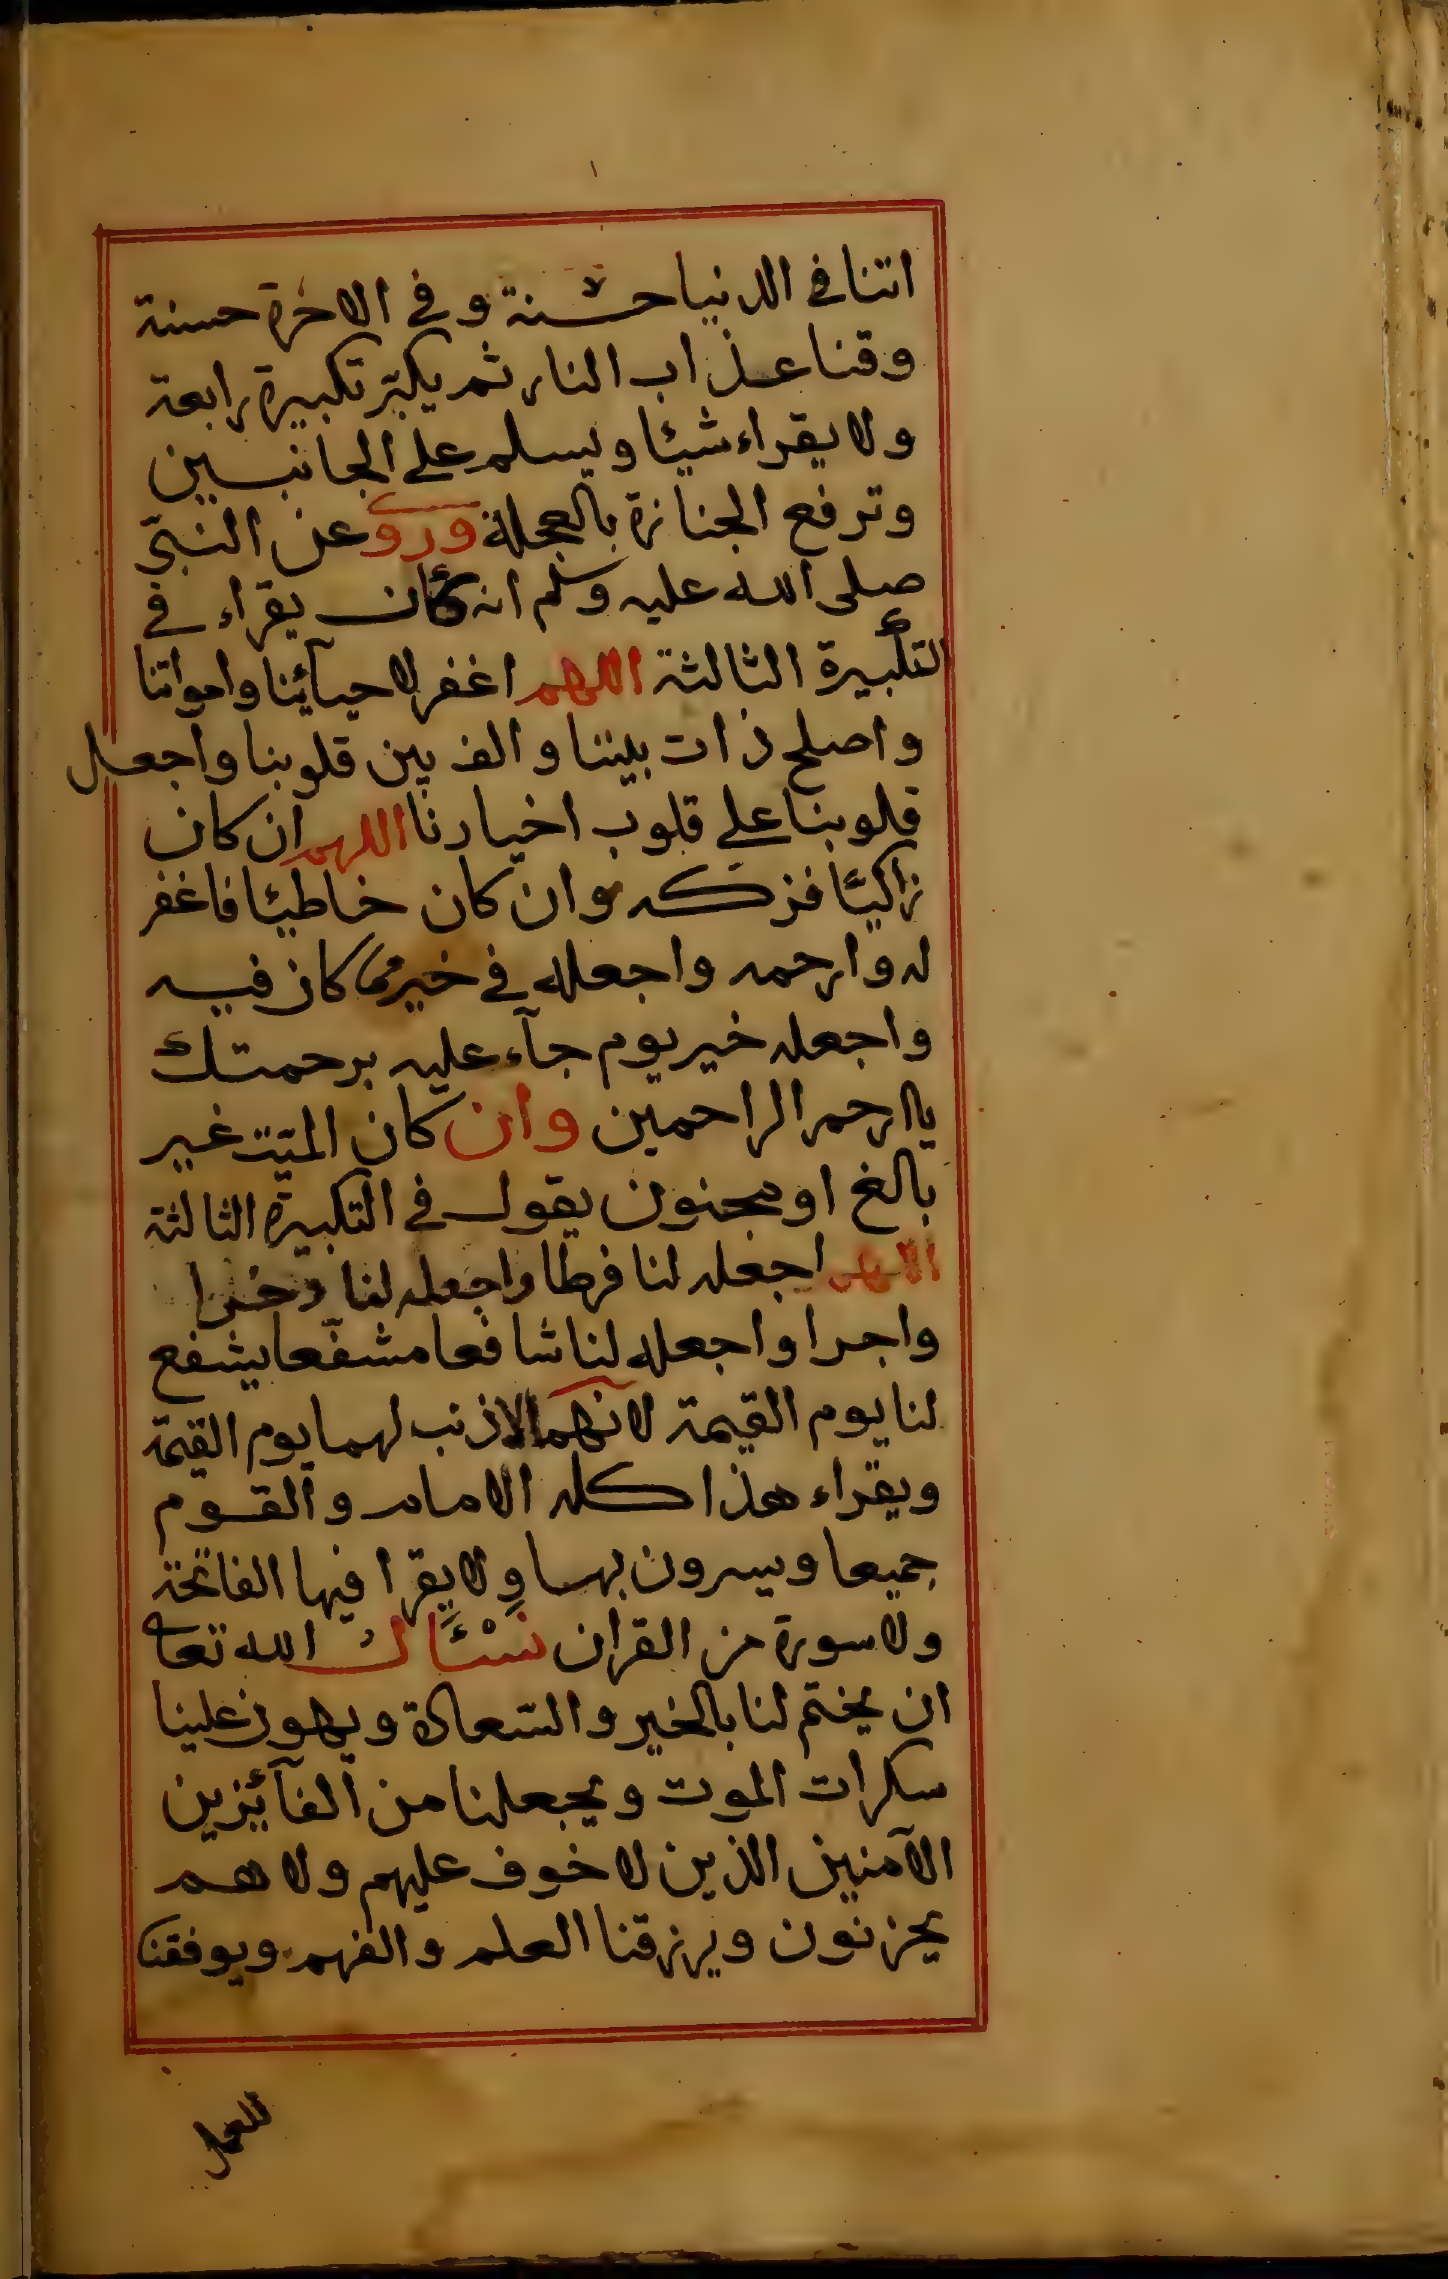 اتنا في الدنيا حسنة وفي الاخرة حسنة
وقنا عذاب النار ثم يكبّر تكبيرة رابعة
ولا يقراء شيئا ويسلم على الجانبين
وترفع الجنازة بالعجلة وروى عن النبيّ
صلى الله عليه وسلم انه كان يقراء في
التكبيرة الثالثة اللهم اغفر لاحيآئنا وامواتنا
واصلح ذات بيننا والف بين قلوبنا واجعل
قلوبنا على قلوب اخيارنا اللهم ان كان
زاكيًا فزكه وان كان خاطئا فاغفر
له وارحمه واجعله في خير مما كان فيه
واجعله خير يوم جآء عليه برحمتك
يا ارحم الراحمين وان كان الميّت غير
بالغ او مجنون يقول في التكبيرة الثالثة
اللهم اجعله لنا فرطا واجعله لنا ذخرا
واجرا واجعله لنا شافعا مشفّعا يشفع
لنا يوم القيمة لانهما لا ذنب لهما يوم القيمة
ويقراء هذا كله الامام والقوم
جميعا ويسرون بها ولا يقرا فيها الفاتحة
ولا سورة من القران نَسْئَلُ الله تعالى
ان يختم لنا بالخير والسّعادة ويهون علينا
سكرات الموت ويجعلنا من الفآئزين
الآمنين الذين لا خوف عليهم ولا هم
يحزنون ويرزقنا العلم والفهم ويوفقنا
للعمل